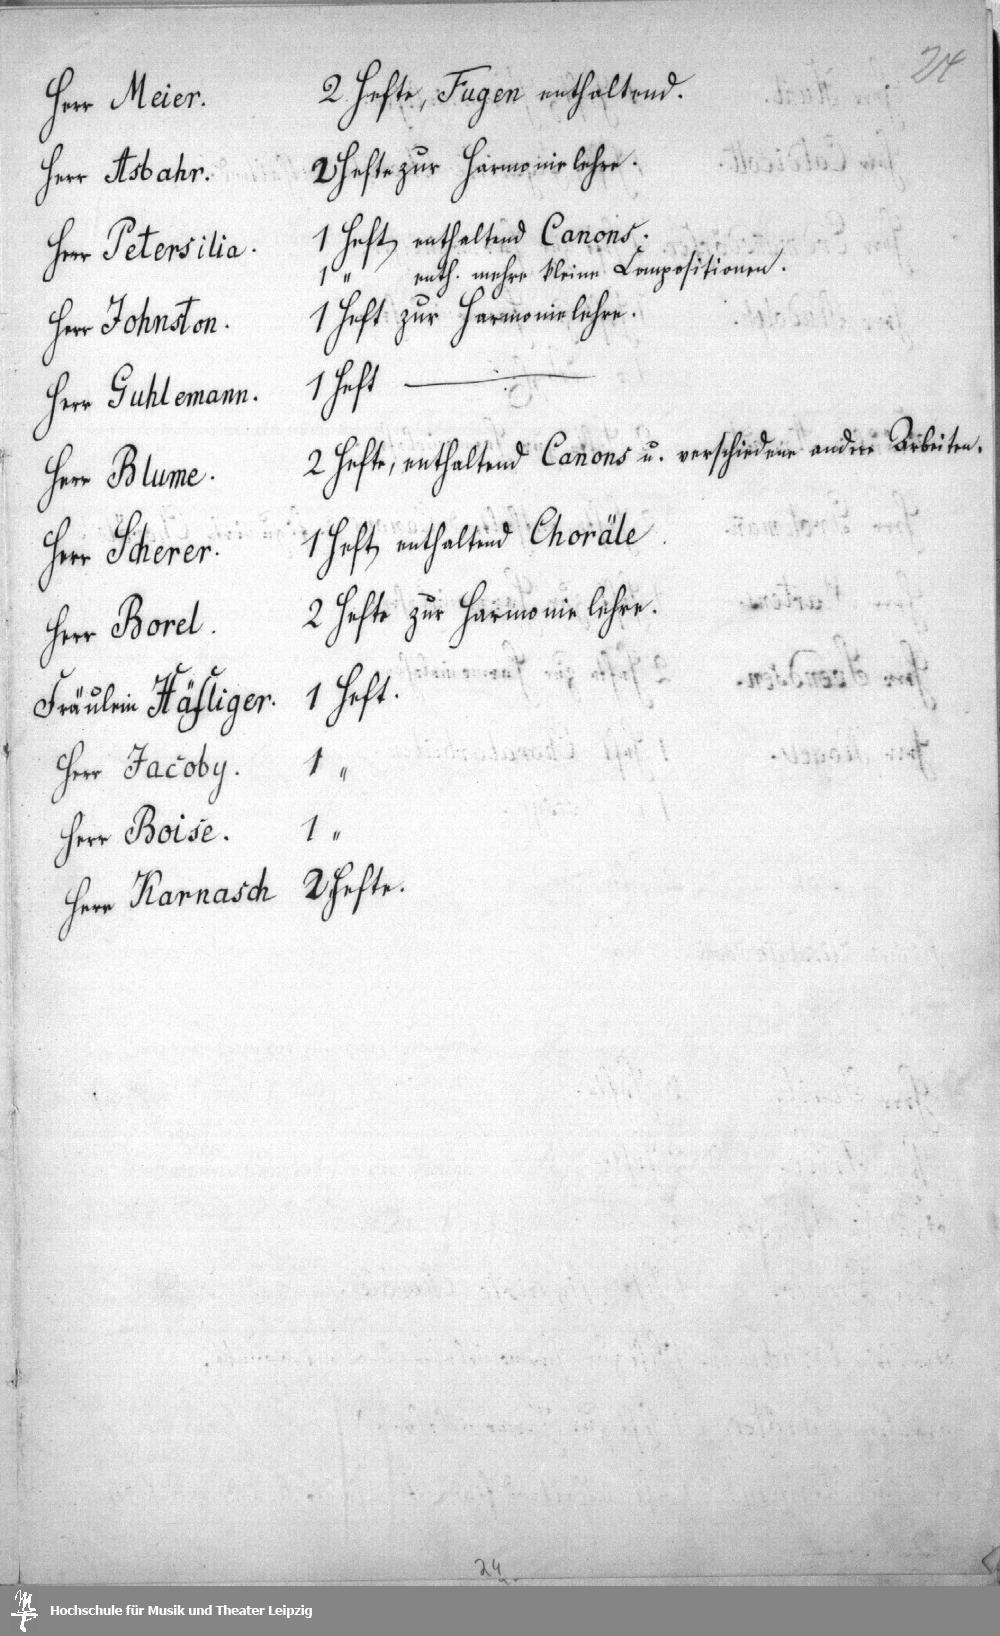 24
Herr Meier. 2 Hefte, Fugen enthaltend.
Herr Asbahr. 2 Hefte zur Harmonielehre.
Herr Petersilia. 1 Heft, enthaltend Canons.
1 " enth. mehre kleine Compositionen.
Herr Johnston. 1 Heft zur Harmonielehre.
Herr Guhlemann. 1 Heft —
Herr Blume. 2 Hefte, enthaltend Canons u. verschiedene andere Arbeiten.
Herr Scherer. 1 Heft, enthaltend Choräle
Herr Borel. 2 Hefte zur Harmonielehre.
Fräulein Häfliger. 1 Heft.
Herr Jacoby. 1 "
Herr Boise. 1 "
Herr Karnasch 2 Hefte.
24
Hochschule für Musik und Theater Leipzig